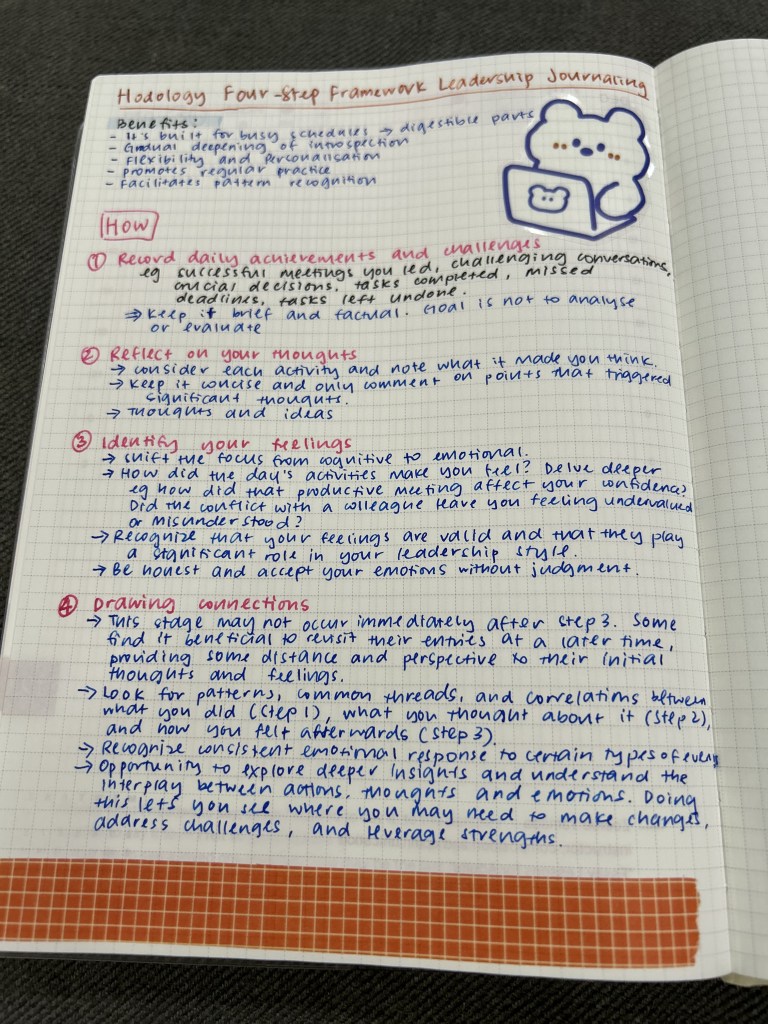 Hodology Four-Step Framework Leadership Journaling
Benefits:
- It's built for busy schedules → digestible parts
- Gradual deepening of introspection
- Flexibility and Personalisation
- promotes regular practice
- Facilitates pattern recognition
How
① Record daily achievements and challenges
eg successful meetings you led, challenging conversations,
crucial decisions, tasks completed, missed
deadlines, tasks left undone.
⇒ Keep it brief and factual. Goal is not to analyse
or evaluate
② Reflect on your thoughts
→ consider each activity and note what it made you think.
→ Keep it concise and only comment on points that triggered
significant thoughts.
→ Thoughts and ideas
③ Identify your feelings
→ shift the focus from cognitive to emotional.
→ How did the day's activities make you feel? Delve deeper
eg how did that productive meeting affect your confidence?
Did the conflict with a colleague leave you feeling undervalued
or misunderstood?
→ Recognize that your feelings are valid and that they play
a significant role in your leadership style.
→ Be honest and accept your emotions without judgment.
④ Drawing connections
→ This stage may not occur immediately after step 3. Some
find it beneficial to revisit their entries at a later time,
providing some distance and perspective to their initial
thoughts and feelings.
→ Look for patterns, common threads, and correlations between
what you did (Step 1), what you thought about it (Step 2),
and how you felt afterwards (Step 3).
→ Recognize consistent emotional response to certain types of events
→ Opportunity to explore deeper insights and understand the
interplay between actions, thoughts and emotions. Doing
this lets you see where you may need to make changes,
address challenges, and leverage strengths.